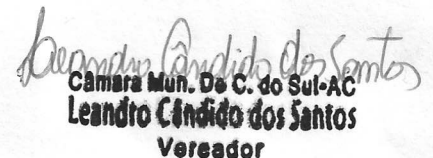 Leandro Cândido dos Santos
Câmara Mun. De C. do Sul-AC
Leandro Cândido dos Santos
Vereador